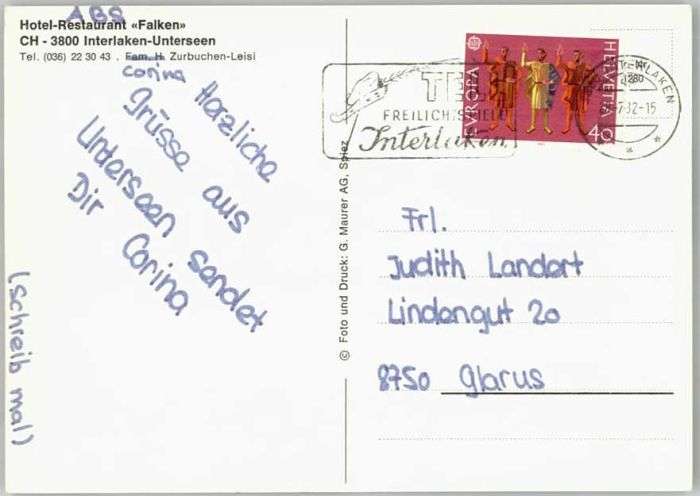 ABS
Hotel-Restaurant «Falken»
CH - 3800 Interlaken-Unterseen
Tel. (036) 22 30 43 . Fam. H. Zurbuchen-Leisi
Corina
Herzliche
Grüsse aus
Unterseen sendet
Dir Corina
(schreib mal)
© Foto und Druck: G. Maurer AG, Spiez
FREILICHTSPIELE
Interlaken
EUROPA
HELVETIA
40
Frl.
Judith Landert
Lindengut 20
8750 Glarus